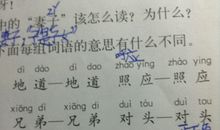 中的“妻子”该怎么读？为什么？
下面每组词语的意思有什么不同。
dì dào dì dao zhào yìng zhào ying
地道—地道 照应—照应
xiōng dì xiōng di duì tóu duì tou
兄弟—兄弟 对头—对头